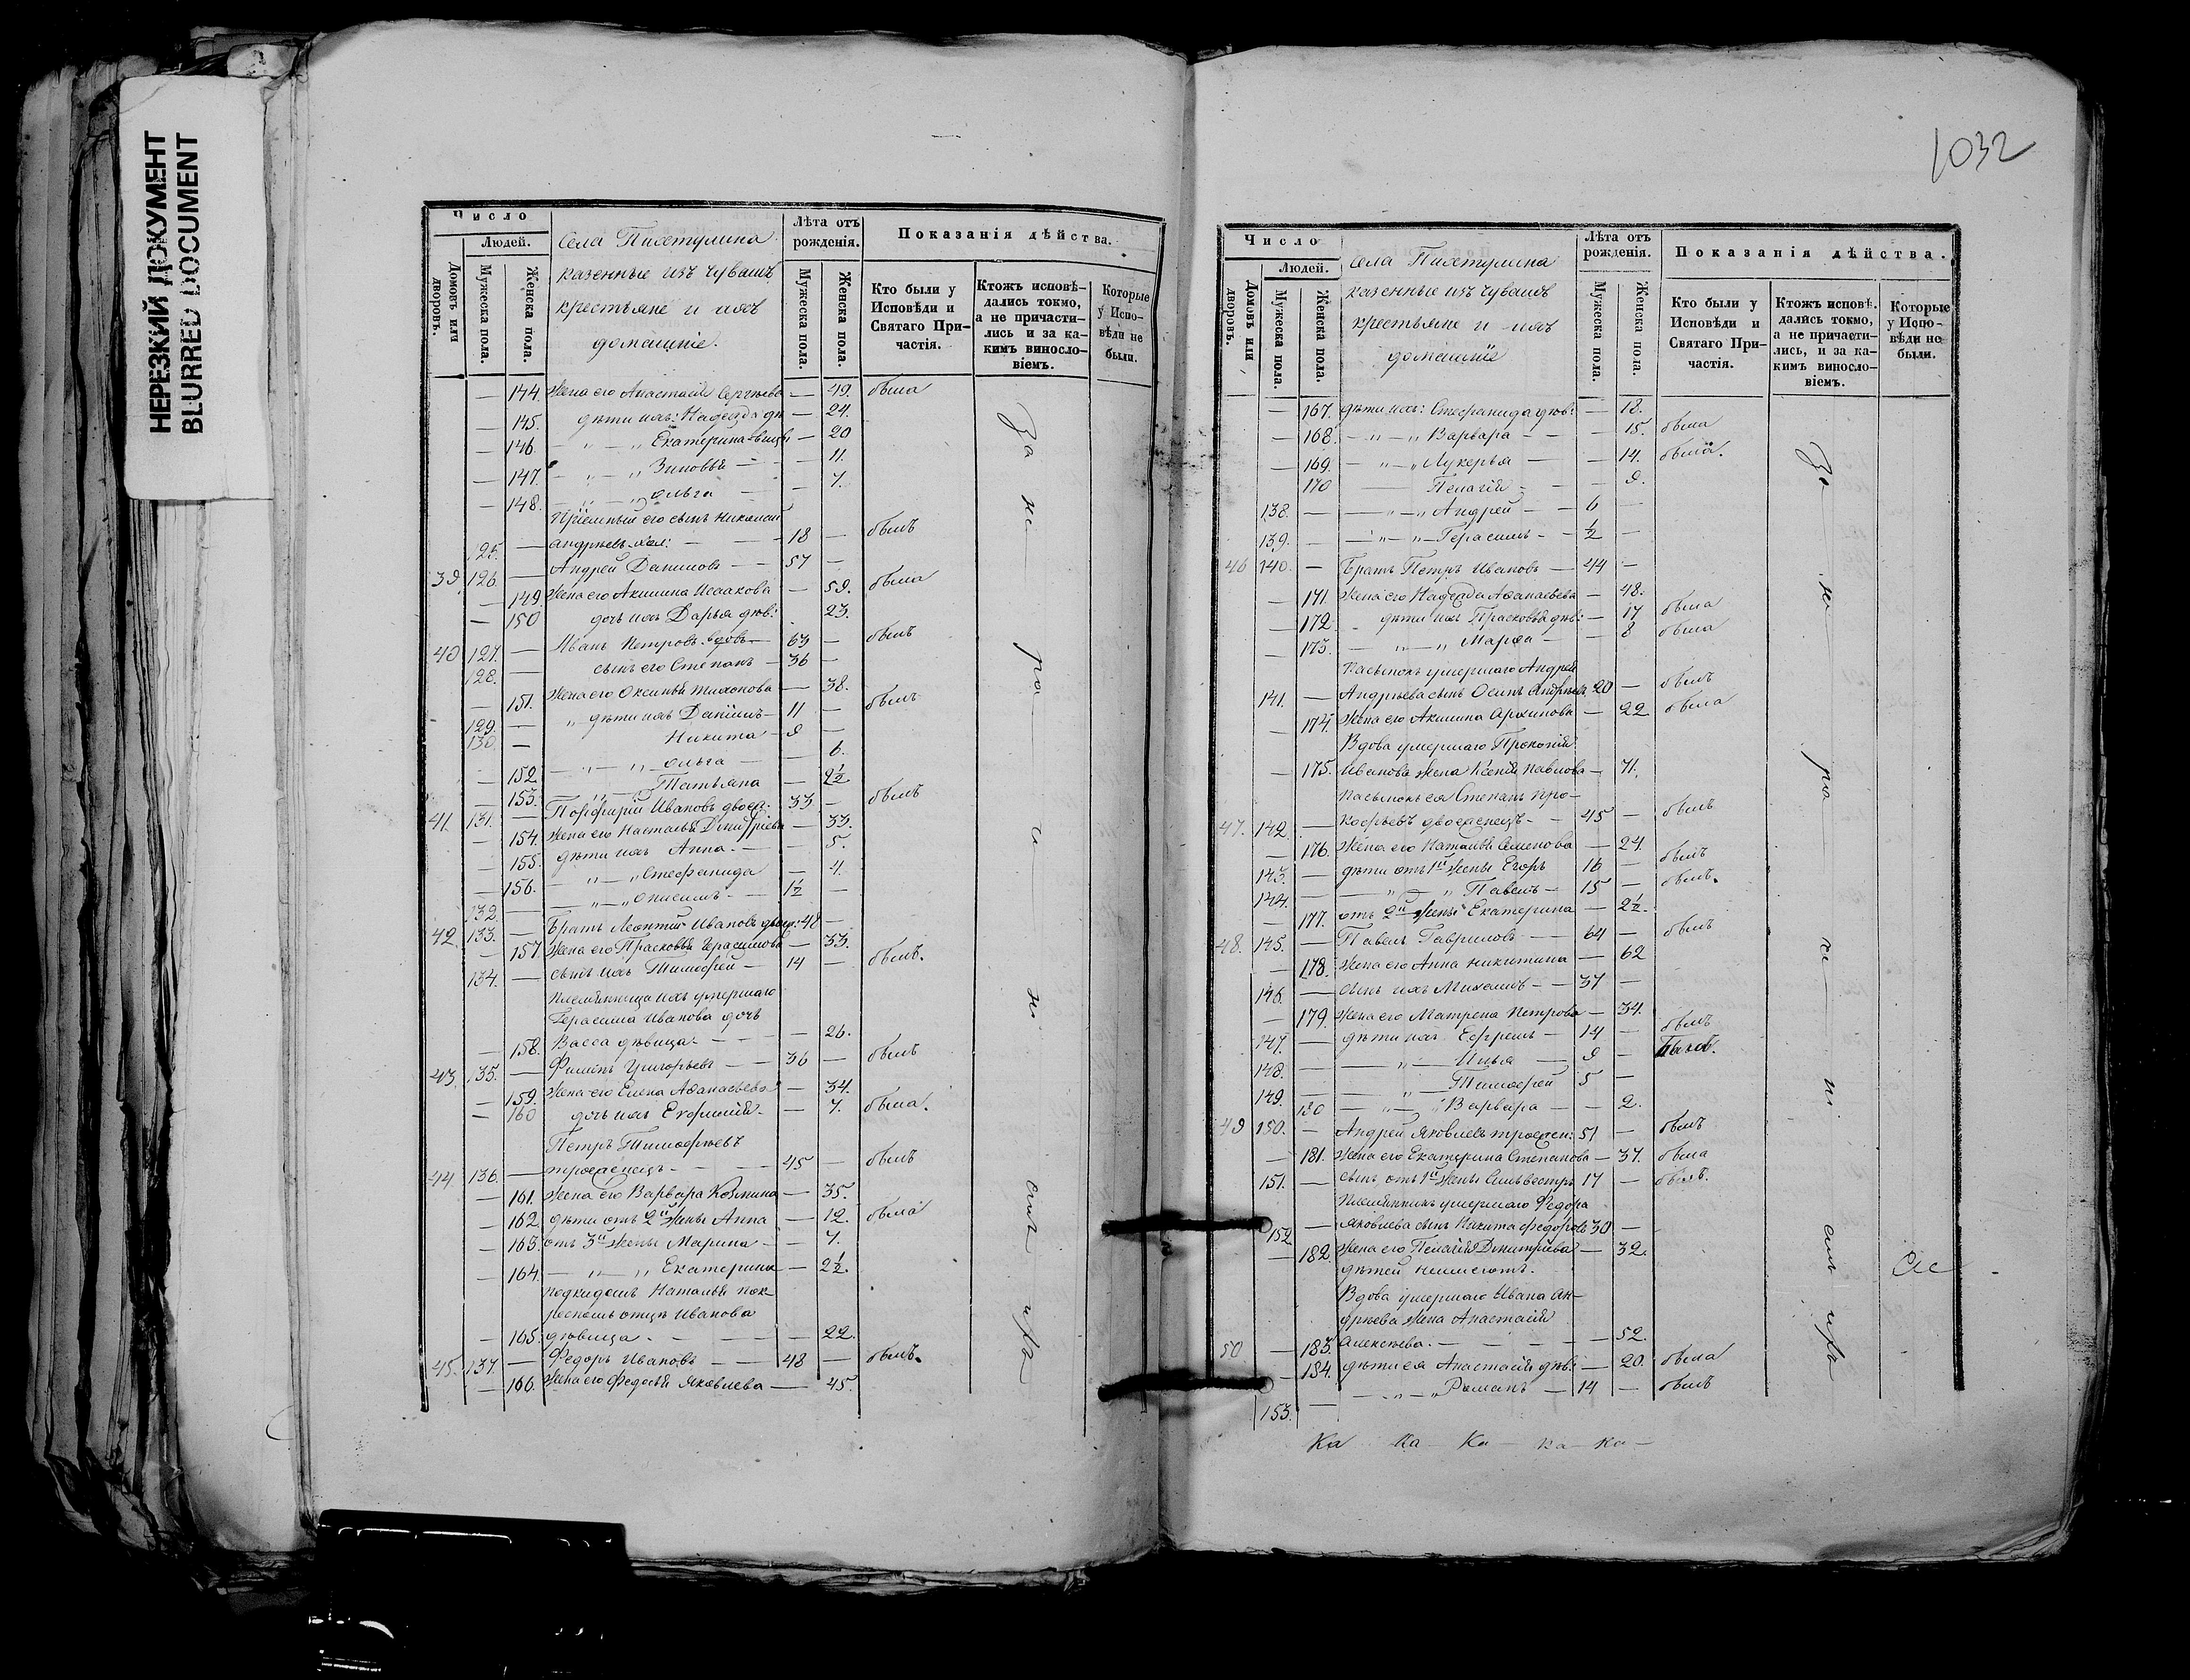 НЕРЕЗКИЙ ДОКУМЕНТ
BLURRED DOCUMENT
Число
Людей.
Домовъ или дворовъ.
Мужеска пола.
Женска пола.
Села Пихтулина
казенные изъ чувашъ
крестьяне и ихъ
домашніе.
Лѣта отъ рожденія.
Мужеска пола.
Женска пола.
Показанія дѣйства.
Кто были у Исповѣди и Святаго Причастія.
Ктожъ исповѣдались токмо, а не причастились и за какимъ винословіемъ.
Которые у Исповѣди не были.
— 144. Жена его Анастасія Сергѣева — 49. была
— 145. дѣти ихъ: Надежда дѣ — 24.
— 146. — „ — „ Екатерина — 20
— 147. — „ — „ Зиновья — — 11.
— 148. — „ — „ Ольга — — 7.
Пріемный его сынъ Николай
125. — Андрѣевъ хол: — — 18 — былъ
39 126. — Андрей Даниловъ — — 57 —
— 149. Жена его Акилина Исаакова — 59. была
— 150 дочь ихъ Дарья дѣв: 23.
40 127. — Иванъ Петровъ вдовъ — 63 — былъ
128. — сынъ его Степанъ — 36 —
— 151. Жена его Оксинья Тихонова — 38.
129. — „ дѣти ихъ Даніилъ — 11 — былъ
130. — Никита — 9 —
— 152. — „ — „ Ольга — — 6.
— 153. — „ — „ Татьяна — 2½
41. 131. — Порфирій Ивановъ двоеж. 33 — былъ
— 154. Жена его Настасья Дмитріева — 33.
— 155. дѣти ихъ Анна. — — 5.
— 156. — „ — „ Стефанида — 4.
132. — — „ — „ Онисимъ — 1½ —
42. 133. — Братъ Леонтій Ивановъ двоеж: 48 —
— 157 Жена его Прасковья Герасимова — 33.
134. — сынъ ихъ Тимофей — 14 — былъ.
Племянница ихъ умершаго
Герасима Иванова дочь
— 158. Васса дѣвица. — — — 26.
43 135. — Филипъ Григорьевъ — 36 — былъ
— 159. Жена его Елена Афанасьева — 34.
— 160 дочь ихъ Евфимія — — 7. была.
Петръ Тимофеевъ
44 136. — троеженецъ. — — 45 — былъ
— 161. Жена его Варвара Козмина — 35.
— 162. дѣти отъ 2й жены Анна — 12. была
— 163. отъ 3й жены Марина — — 7.
— 164. — „ — „ Екатерина — 2½.
подкидышъ Наталья
отцѣ Иванова
— 165. дѣвица. — — — 22.
45. 137. — Федоръ Ивановъ — — 48 — былъ.
— 166. Жена его Федосья Яковлева — 45.
1032
Число
Людей.
Домовъ или дворовъ.
Мужеска пола.
Женска пола.
Села Пихтулина
казенные изъ чувашъ
крестьяне и ихъ
домашніе
Лѣта отъ рожденія.
Мужеска пола.
Женска пола.
Показанія дѣйства.
Кто были у Исповѣди и Святаго Причастія.
Ктожъ исповѣдались токмо, а не причастились, и за какимъ винословіемъ.
Которые у Исповѣди не были.
— 167. дѣти ихъ: Стефанида дѣв: — 18.
— 168. — „ — „ Варвара — — 15. была
— 169. — „ — „ Лукерья — — 14. была.
170 — Пелагія — — 9.
138. — — „ — „ Андрей — — 6 —
139. — — „ — „ Герасимъ — ½ —
46 140. — Братъ Петръ Ивановъ — 44 —
— 171. Жена его Надежда Афанасьева — 48.
— 172. дѣти ихъ Прасковья дѣв: — 17 была
— 173. — „ — „ Марфа — — 8 была
Пасынокъ умершаго Андрея
141. — Андрѣева сынъ Осипъ Андрѣевъ 20 — былъ
— 174. Жена его Акилина Архипова — 22 была
Вдова умершаго Прокопія
— 175. Иванова жена Ксенія Павлова — 71.
Пасынокъ ея Степанъ Про-
47. 142. — кофьевъ двоеженецъ. — 45 — былъ
— 176. Жена его Наталья Семенова — 24.
143. — дѣти отъ 1й жены Егоръ 16 — былъ
144. — — „ — „ Павелъ — 15 — былъ.
— 177. отъ 2й жены Екатерина — 2½.
48. 145. — Павелъ Гавриловъ — — 64 — былъ
— 178. Жена его Анна Никитина — 62
146. — сынъ ихъ Михаилъ — — 37 —
— 179. Жена его Матрена Петрова — 34.
147. — дѣти ихъ Ефремъ — 14 — былъ
148. — — „ — Илья — 9 —
149. — — „ — Тимофей 5 —
180 — „ — „ Варвара — — 2.
49 150. — Андрей Яковлевъ троежен: 51 — былъ
— 181. Жена его Екатерина Степанова — 37. была
151. — сынъ отъ 1й жены Сильвестръ 17 — былъ.
Племянникъ умершаго Федора
152 — Яковлева сынъ Никита Федоровъ 30 —
— 182. Жена его Пелагія Дмитріева — 32.
дѣтей неимеютъ.
Вдова умершаго Ивана Ан-
дрѣева жена Анастасія
50 — 183 Алексѣева. — — — 52.
— 184. дѣти ея Анастасія дѣв: — 20. была
153. — — „ — „ Романъ — 14 — былъ
Ка Ка — Ка — ка — ка —